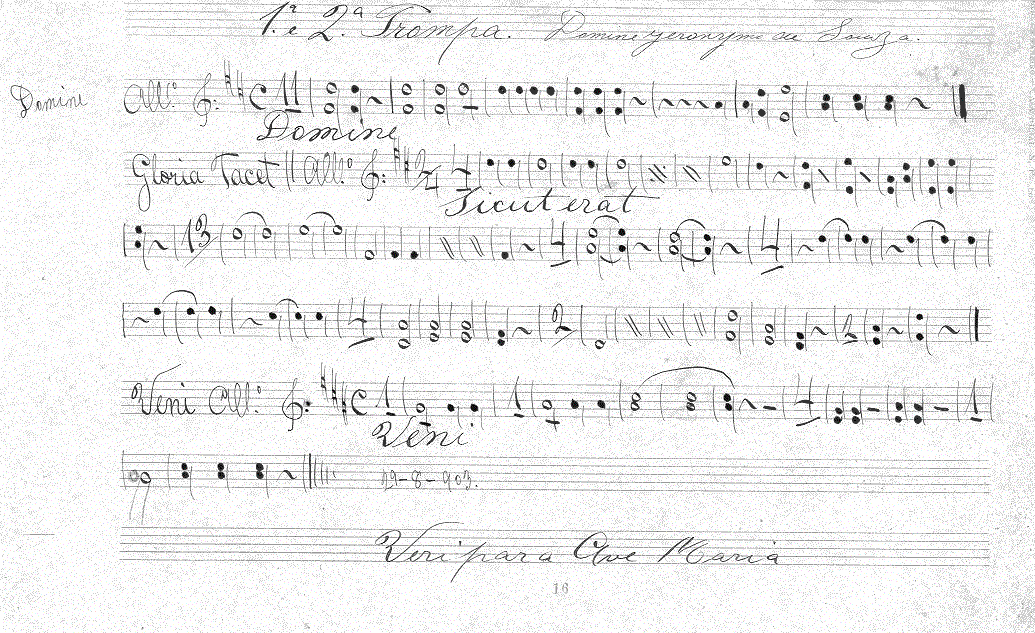 1.ª e 2.ª Trompa. Domine Jeronymo de Souza.
Domine All.º C 11
Domine
Gloria Tacet All.º 2/4 4
Sicut erat
13 4 4
4 2 2
Veni All.º C 1 1 4 1
Veni
29-8-903.
Veni para Ave Maria
16